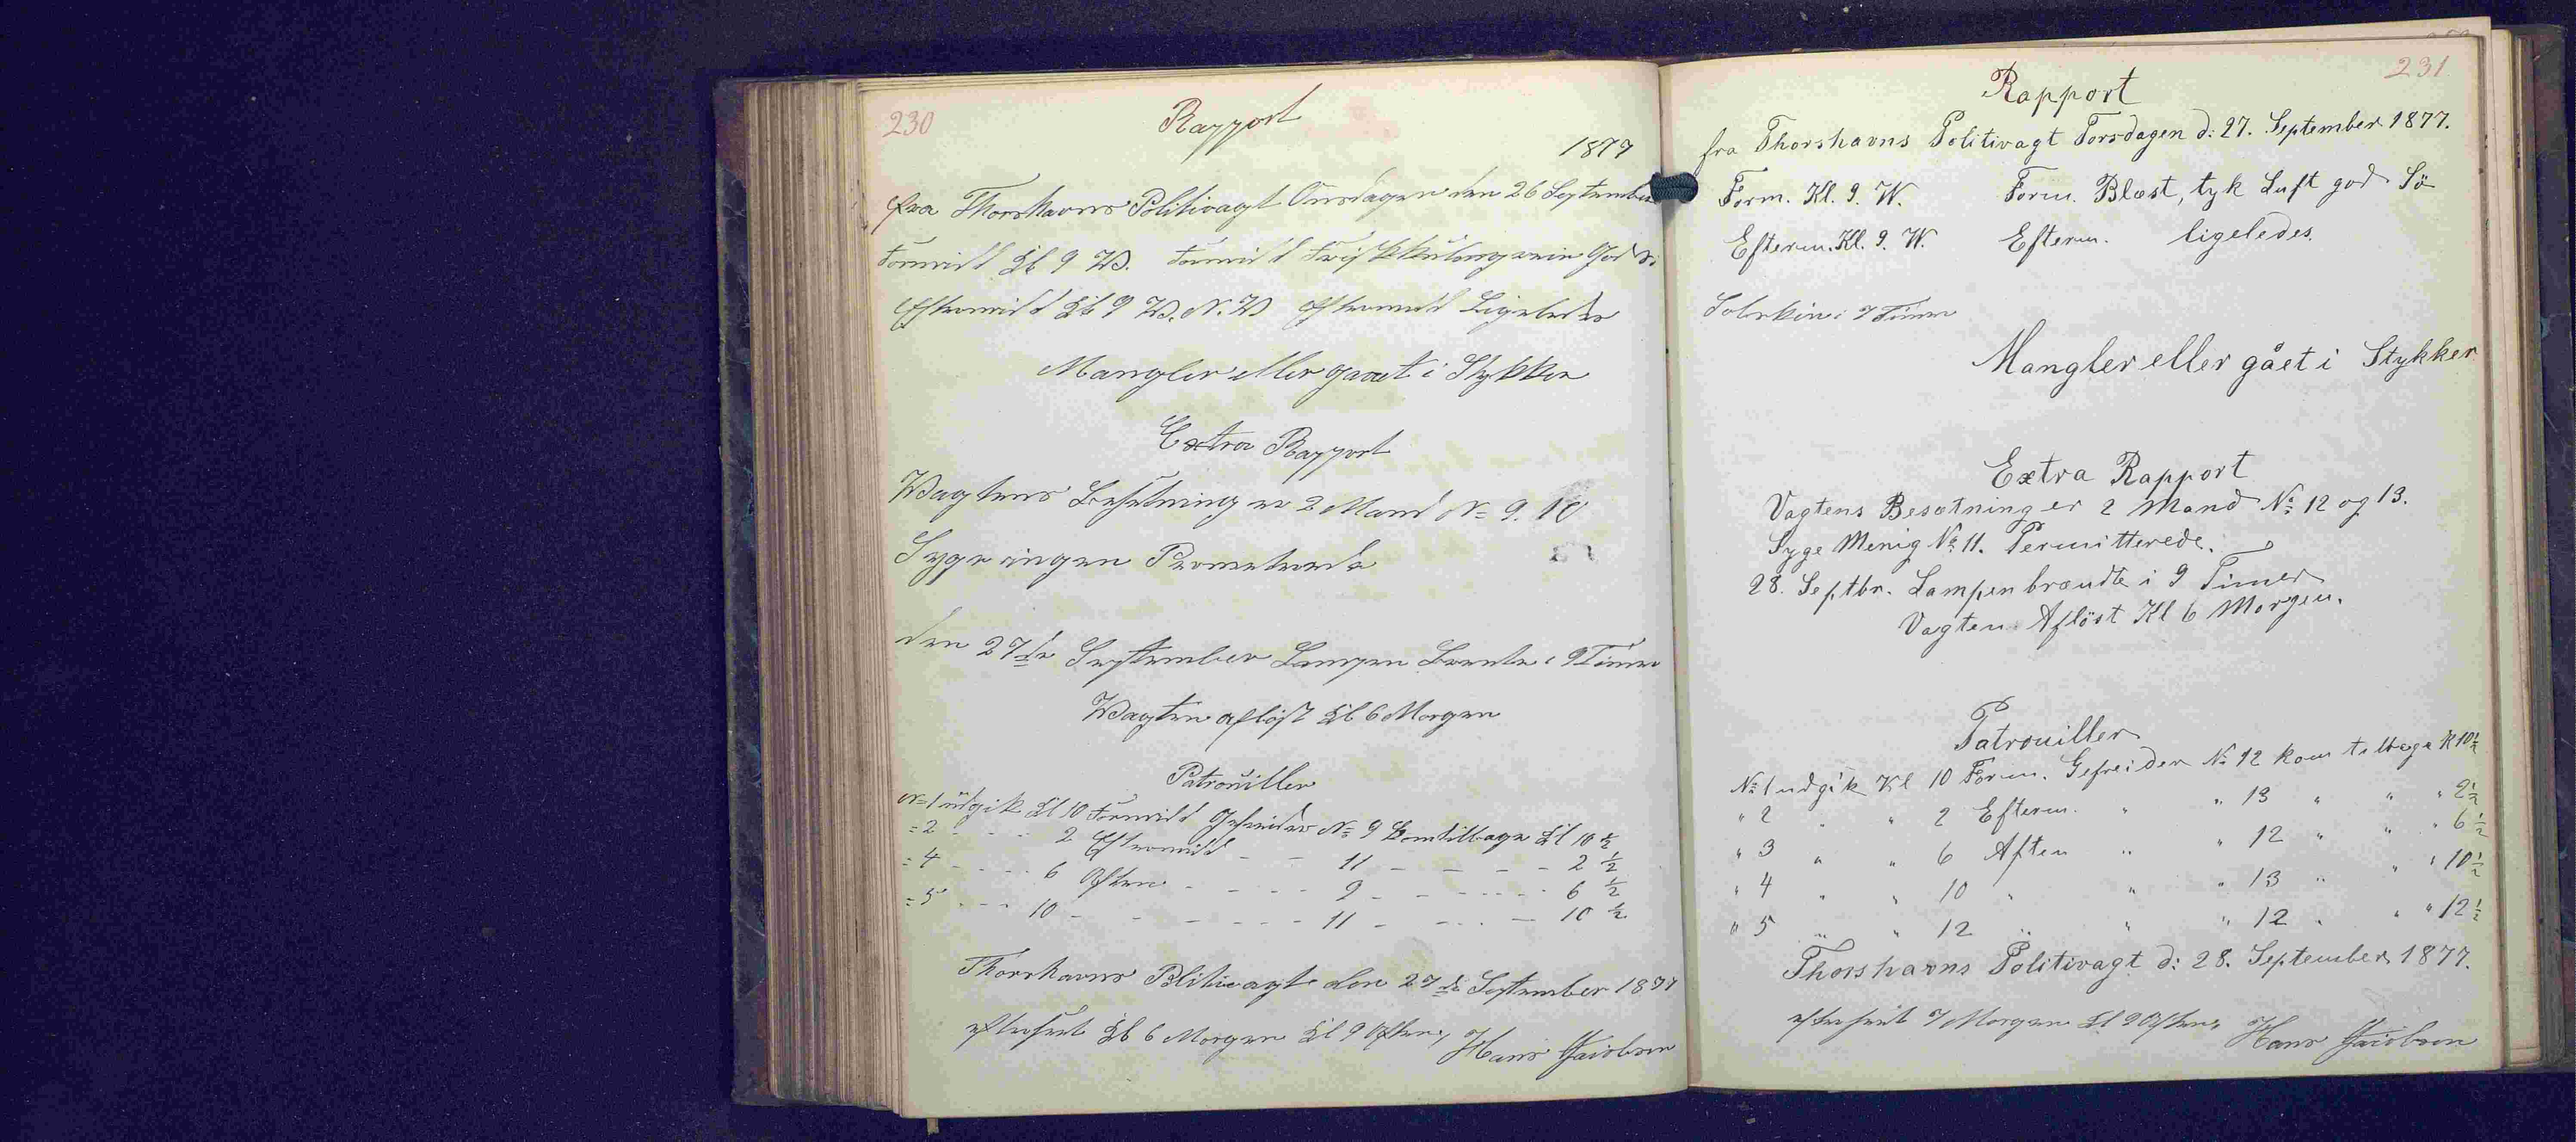 230
Rapport
1877
fra Thorshavns Politivagt Onsdagen den 26 September
Formidd Kl 9 W. Formidd Friskkuling rein God Sö
Eftermidd Kl 9 W. N. W Eftermidd Ligeledes
Mangler eller gaaet i Stykker
Extra Rapport
Wagtens Besetning er 2 Mand No 9. 10
Syge ingen
den 27de September Lampen Brente i 9 Timer
Wagten aflöst Kl 6 Morgen
Patrouiller
No 1 udgik Kl 10 Formidd Gefreider No 9 kom tilbage Kl 10 1/2
= 2 - - - - 2 Eftermidd - - 11 - - - - 2 1/2
= 4 - - - - 6 Aften - - - - 9 - - - - 6 1/2
= 5 - - - 10 - - - - - - 11 - - - - 10 1/2
Thorshavns Politivagt den 27de September 1877
efterseet Kl 6 Morgen Kl 9 Aften, Hans Jacobsen
231
Rapport
fra Thorshavns Politivagt Torsdagen d: 27. September 1877.
Form. Kl. 9. W. Form. Blæst, tyk Luft god Sö
Efterm. Kl. 9. W. Efterm. ligeledes.
Solskin i 7 Timer
Mangler eller gået i Stykker
Extra Rapport
Vagtens Besætning er 2 Mand No 12 og 13.
Syge Menig No 11. Permitterede.
28. Septbr. Lampen brændte i 9 Timer
Vagten Aflöst Kl 6 Morgen.
Patrouiller
No 1 udgik Kl 10 Form. Gefreider No 12 kom tilbage K 10 1/2
" 2 " " 2 Efterm. " " 13 " " " 2 1/2
" 3 " " 6 Aften " " 12 " " " 6 1/2
" 4 " " 10 " " " 13 " " " 10 1/2
" 5 " " 12 " " " 12 " " " 12 1/2
Thorshavns Politivagt d: 28. September 1877.
efterseet 7 Morgen Kl 9 Aften, Hans Jacobsen